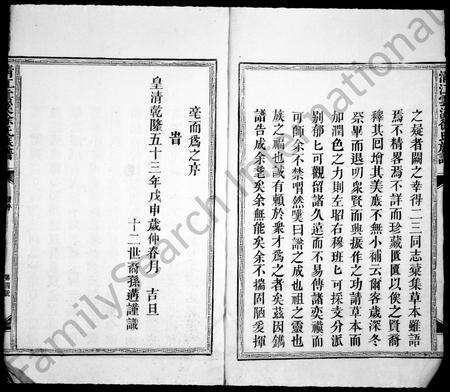 之疑者闕之幸得二三同志彙集草本雖語
焉不精畧焉不詳而珍藏匱匱以俟之賢裔
繹其囙增其美底不無小補云爾客歲深冬
祭畢而退明衆賢而興振作之功請草本而
加潤色之力則左昭右穆班匕可採支分派
别郁匕可觀留諸久遠而不易傳諸奕禩而
可師余不禁喟然嘆曰譜之成也祖之靈也
族之福也誠有賴於衆才爲之者矣茲因鐫
譜告成余老矣余無能矣余不揣固陋爰掇
筆而爲之序
旹
皇清乾隆五十三年戊申歲仲春月 吉旦
十二世裔孫 謹識
FamilySearch International